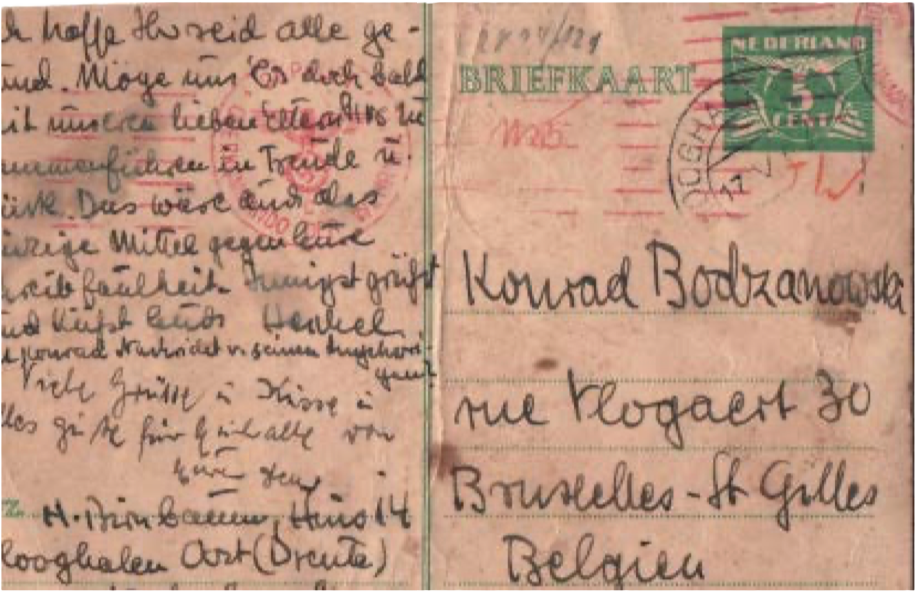 ich hoffe Ihr seid alle ge-
und. Möge uns Er doch bald
mit unseren lieben Eltern zu
sammenführen in Freude u.
Das wäre auch das
einzige Mittel gegen Eure
Schreibfaulheit. Innigst grüßt
und küsst Euch Henkel
Konrad Nachricht v. seinen Angehöri-
gen?
Viele Grüsse u Küsse u
alles gute für Euch alle von
Eure
H. Birnbaum, Huis 14
Hooghalen Oost (Drente)
BRIEFKAART
NEDERLAND
5
CENT
OOGHAL
17
Konrad Bodzanowski
rue Klogaert 30
Bruxelles - St Gilles
Belgien